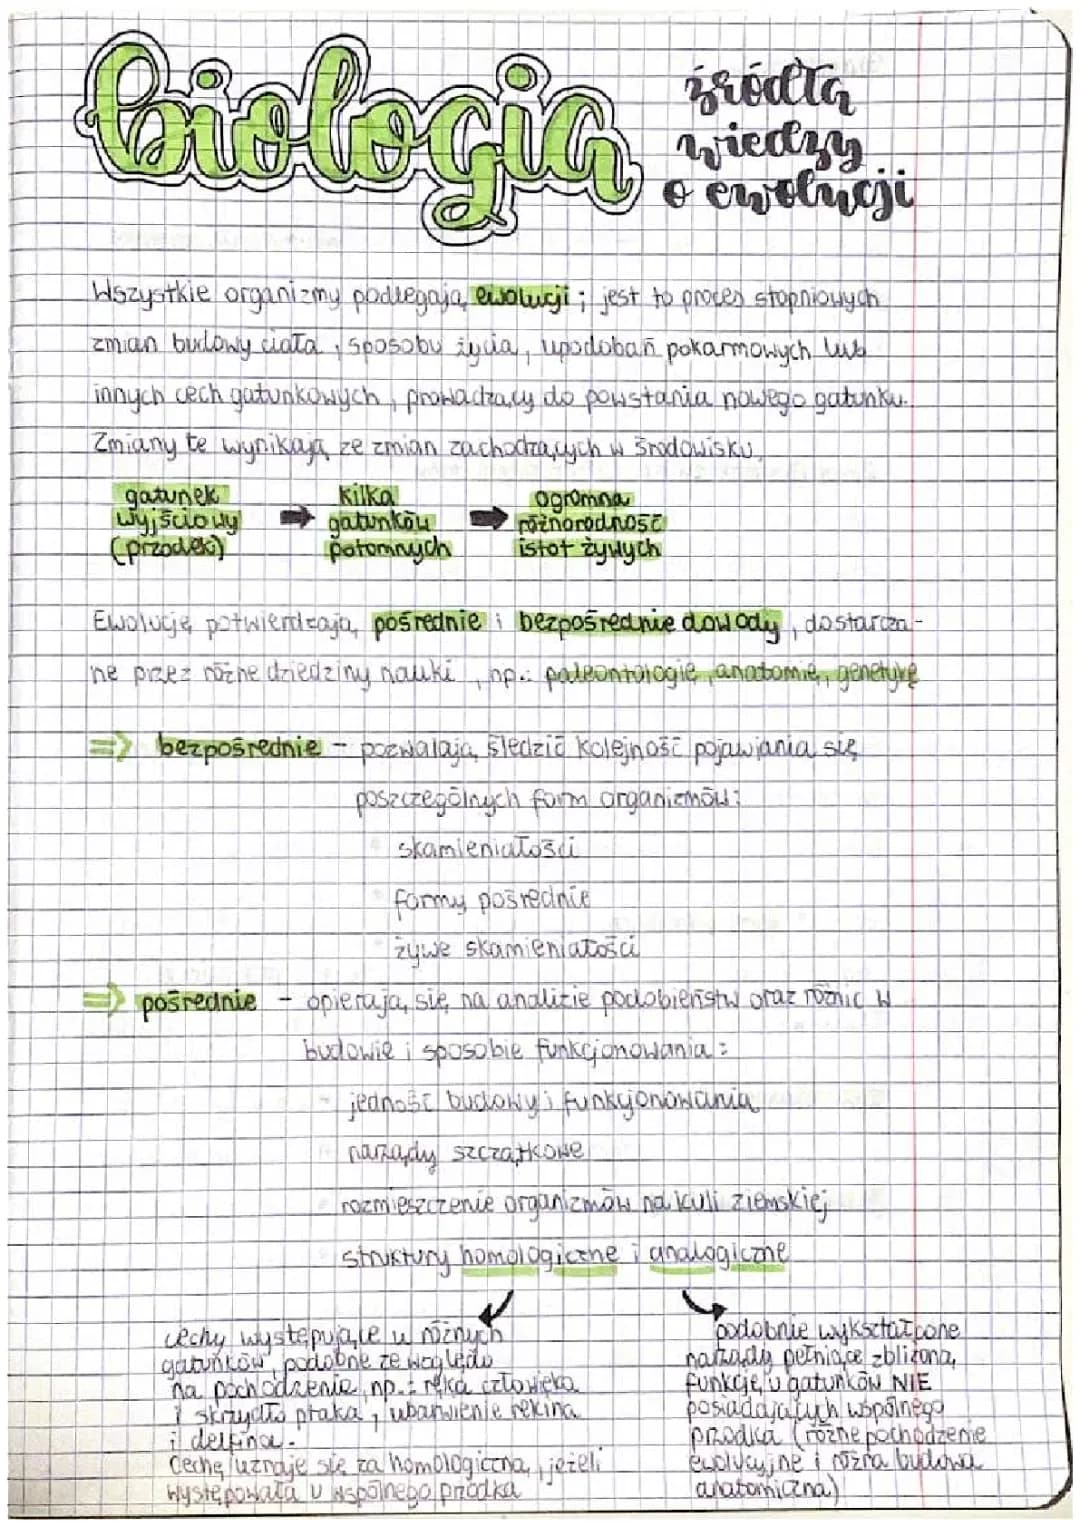 biologia
źródła
wiedzy
o ewolucji
Wszystkie organizmy podlegają ewolucji; jest to proces stopniowych
zmian budowy ciała, sposobu życia, upodobań pokarmowych lub
innych cech gatunkowych, prowadzący do powstania nowego gatunku.
Zmiany te wynikają ze zmian zachodzących w środowisku.
gatunek wyjściowy (przodek) ➡ kilka gatunków potomnych ➡ ogromna różnorodność istot żywych
Ewolucję potwierdzają pośrednie i bezpośrednie dowody, dostarcza-
ne przez różne dziedziny nauki, np.: paleontologię, anatomię, genetykę
=> bezpośrednie - pozwalają śledzić kolejność pojawiania się
poszczególnych form organizmów:
skamieniałości
formy pośrednie
żywe skamieniałości
=> pośrednie - opierają się na analizie podobieństw oraz różnic w
budowie i sposobie funkcjonowania:
jedność budowy i funkcjonowania
narządy szczątkowe
rozmieszczenie organizmów na kuli ziemskiej
struktury homologiczne i analogiczne
cechy występujące u różnych
gatunków, podobne ze względu
na pochodzenie, np.: ręka człowieka
i skrzydło ptaka, ubarwienie rekina
i delfina.
Cechę uznaje się za homologiczną, jeżeli
występowała u wspólnego przodka
podobnie wykształcone
narządy pełniące zbliżoną
funkcję, u gatunków NIE
posiadających wspólnego
przodka (różne pochodzenie
ewolucyjne i różna budowa
anatomiczna)